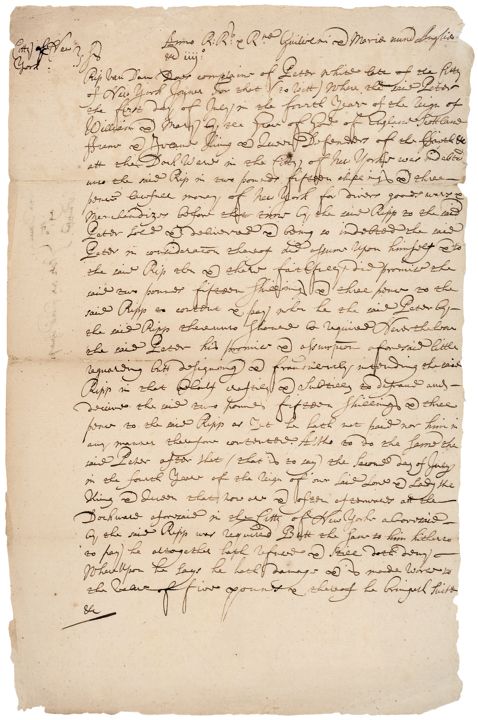 Citty of New York ss
Anno R. Rs & Rne Guilielmi & Mariæ nunc Angliæ
&c iiijo
Rip Van Dam Doos complaine of Peter White late of the Citty
of New York Joyner for that (to witt) Where the said Peter
the first day of July in the fourth Year of the Reign of
William & Mary by the Grace of God of England Scottland
ffrance & Ireland King & Queen Defenders of the ffaith &c
att the Dock Ward in the Citty of New Yorke was indebted
unto the said Ripp in two pounds fifteen shillings & three
pence lawfull money of New York for divers goods wares &
Merchandizes before that time by the said Ripp to the said
Peter sold & delivered & being so indebted the said
Peter in consideration thereof did assume upon himselfe & to
the said Rip then & there faithfully did promise the
said two pounds fifteen shillings & three pence to the
said Ripp to content & pay when he the said Peter by
the said Ripp thereunto should be required Neverthelesse
the said Peter his promise & assumption aforesaid little
regarding butt designing & fraudulently intending the said
Ripp in that behalfe craftily & subtilly to defraud and
deceive the said two pounds fifteen shillings & three
pence to the said Ripp as Yet he hath not paid nor him in
any manner therefore contented Altho to do the same the
said Peter after that (that is to say) the second day of July
in the fourth Year of the Reign of our said Lord & Lady the
King & Queen that now are & often afterwards att the
Dockward aforesaid in the Citty of New Yorke aforesaid
by the said Ripp was required Butt the same to him hitherto
to pay he altogether hath refused & still doth deny
Whereupon he says he hath damage & is made worse to
the value of five pounds & thereof he bringeth suite
&c